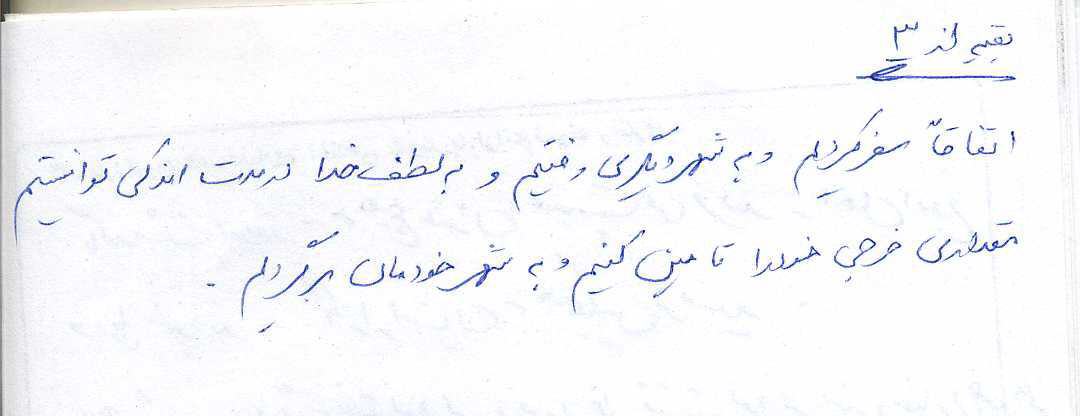 بقیه از ۳
اتفاقاً سفر کردیم و به شهر دیگری رفتیم و به لطف خدا در مدت اندکی توانستیم
مقداری خرجی خود را تامین کنیم و به شهر خودمان برگردیم.